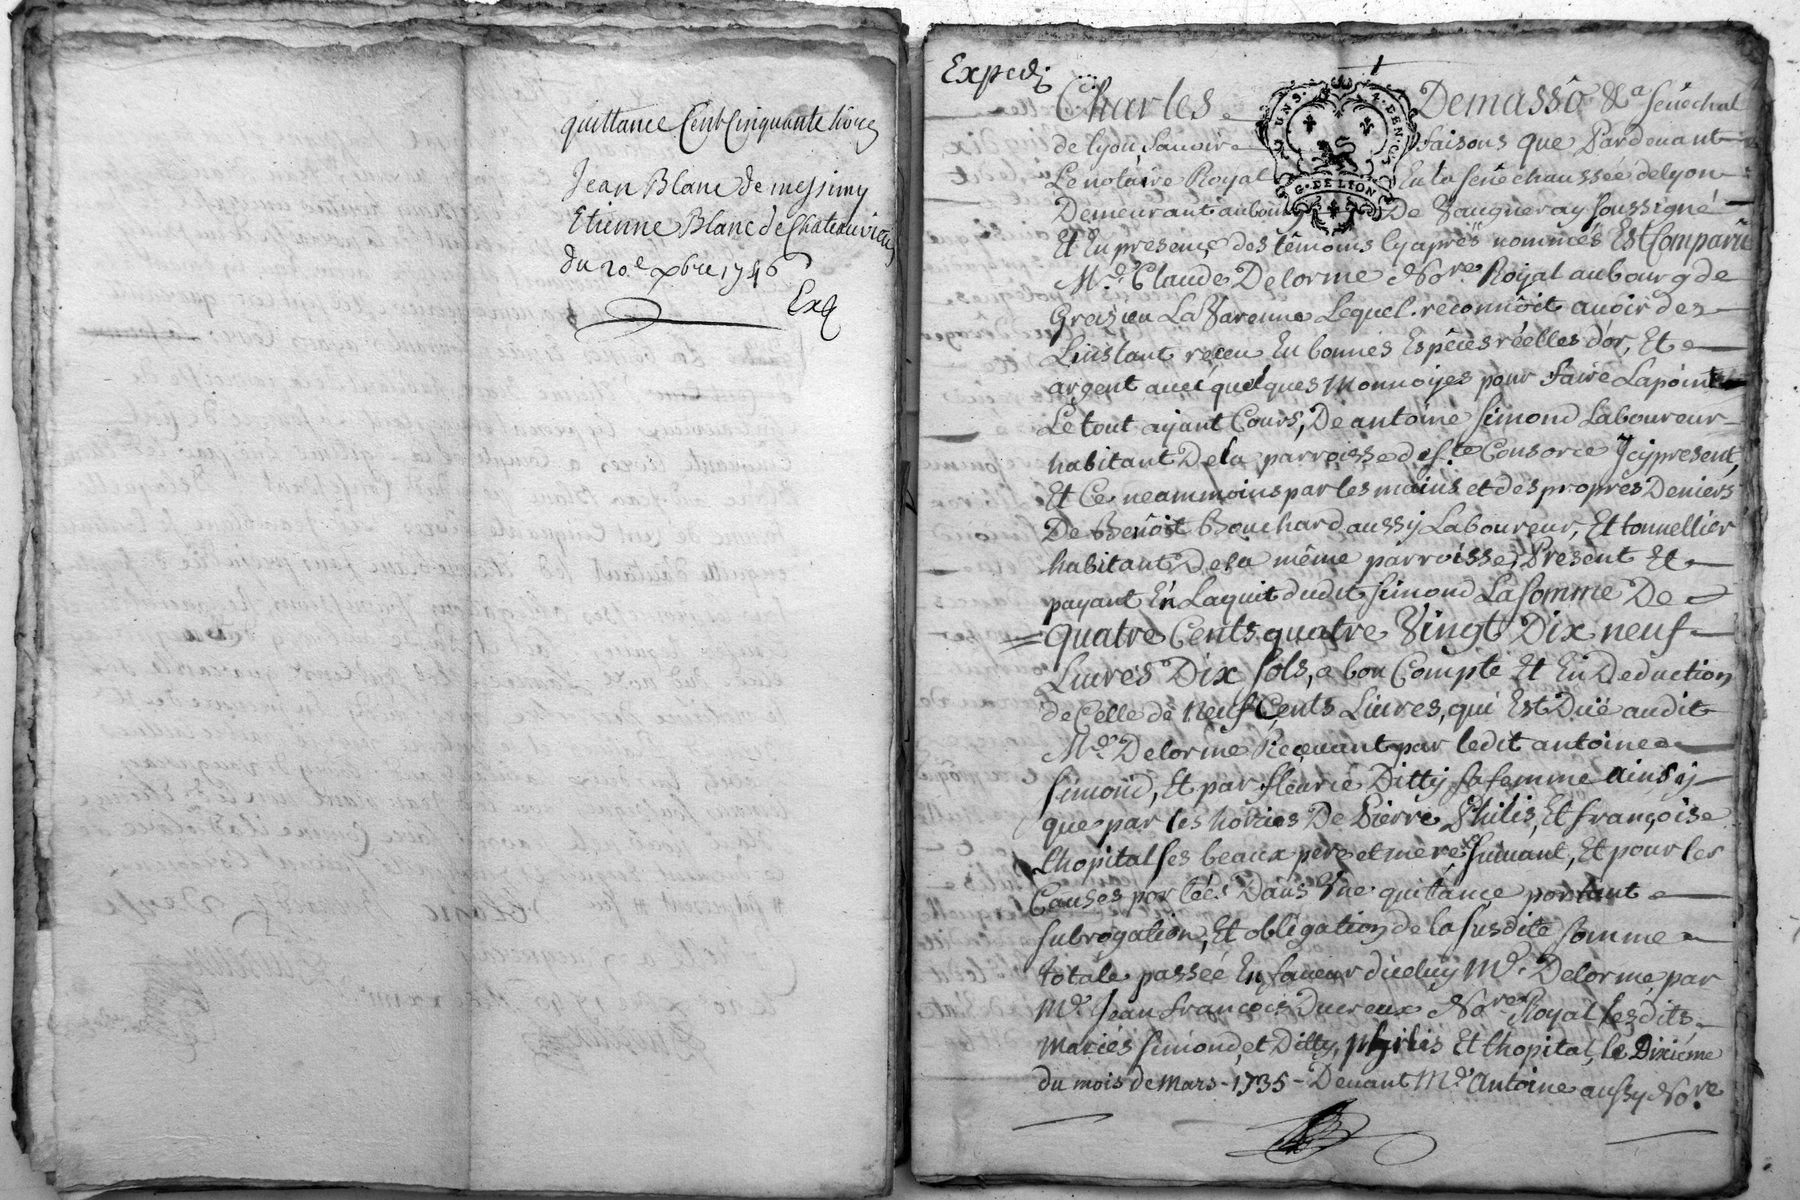 quittance Cent Cinquante livres
Jean Blanc de messimy
Etienne Blanc de Chateauvieux
du 20.e xbre 1746
Exp
Expedi
Charles Demasso &a senechal
de Lyon Savoir faisons que Pardevant
Le notaire Royal En la senechaussée de Lyon
Demeurant au bourg De Vaugneray soussigné
Et En presence des témoins cy après nommés Est Comparu
M.e Claude Delorme No.re Royal au bourg de
Greisieu La Varenne Lequel reconnoit avoir de
Linstant receu En bonnes Espéces réelles d'or, Et
argent avec quelques Monnoyes pour faire Lapoint
Le tout ayant Cours, De antoine Simond Laboureur
habitant De la parroisse de S.te Consorce Icy present,
Et Ce neammoins par les mains et des propres Deniers
De Benoit Bouchard aussy Laboureur, Et tonnellier
habitant De la même parroisse, Present Et
payant En Laquit dudit Simond La Somme De
quatre Cents quatre Vingt Dix neuf
Livres Dix sols, a bon Compte Et En Deduction
de Celle de Neuf Cents Livres, qui Est Düe audit
M.e Delorme Recevant par ledit antoine
Simond, Et par fleurie Ditty sa femme ainsy
que par les hoiries De Pierre Philis, Et françoise
Lhopital ses beaux pere et mere Suivant, Et pour les
Causes portées Dans Une quittance portant
Subrogation, Et obligation de la Susdite Somme
totale passée En faveur diceluy M.e Delorme par
M.e Jean francois Ducreux No.re Royal lesdits
Mariés Simond, et Ditty, philis Et Lhopital, le Dixième
du mois de Mars - 1735 - Devant M.e Antoine aussy No.re
G. DE LION